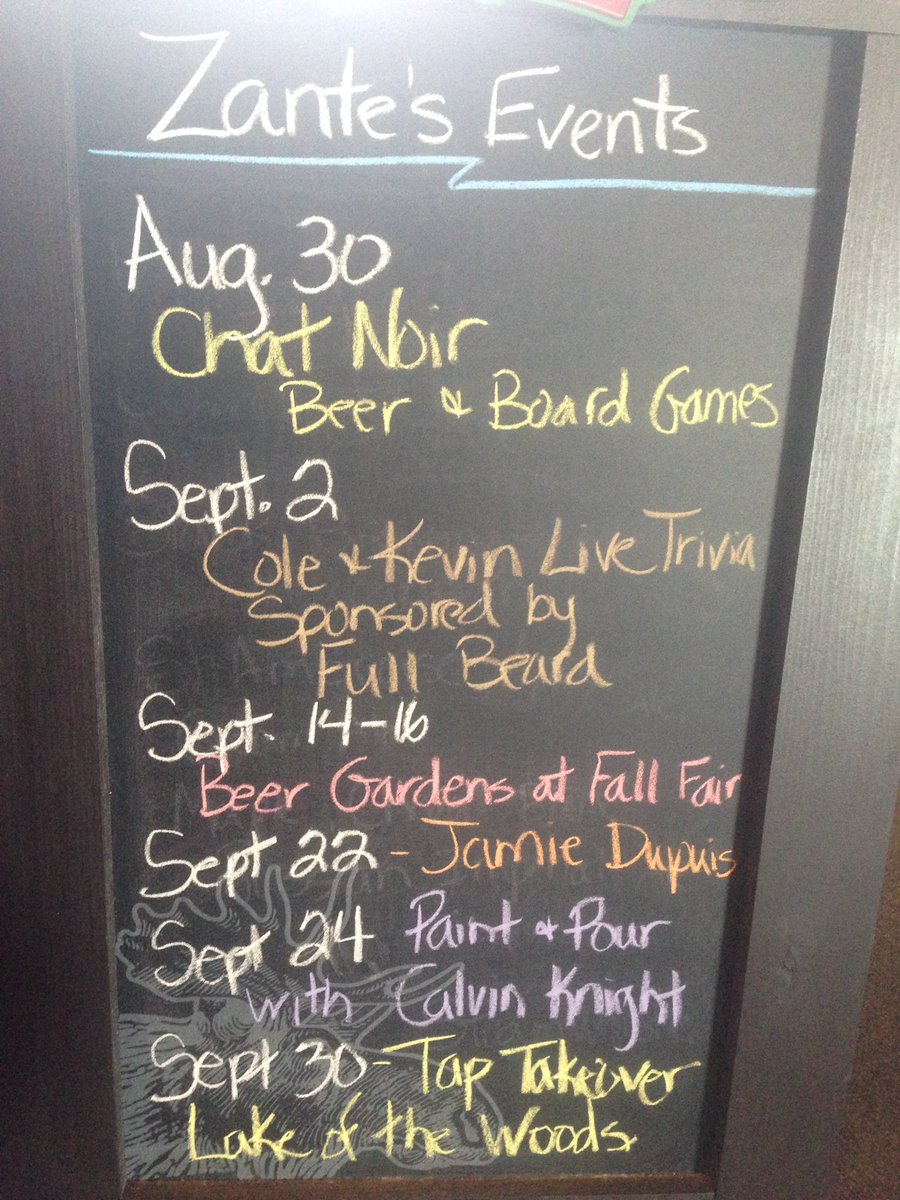 Zante's Events
Aug. 30
Chat Noir
Beer & Board Games
Sept. 2
Cole & Kevin Live Trivia
Sponsored by
Full Beard
Sept. 14-16
Beer Gardens at Fall Fair
Sept 22 - Jamie Dupuis
Sept 24 Paint & Pour
with Calvin Knight
Sept 30 - Tap Takeover
Lake of the Woods